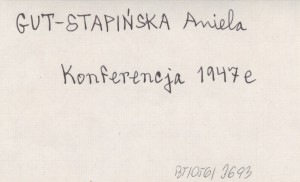 GUT-STAPIŃSKA Aniela
Konferencja 1947 e
BT/OTG/ 3693